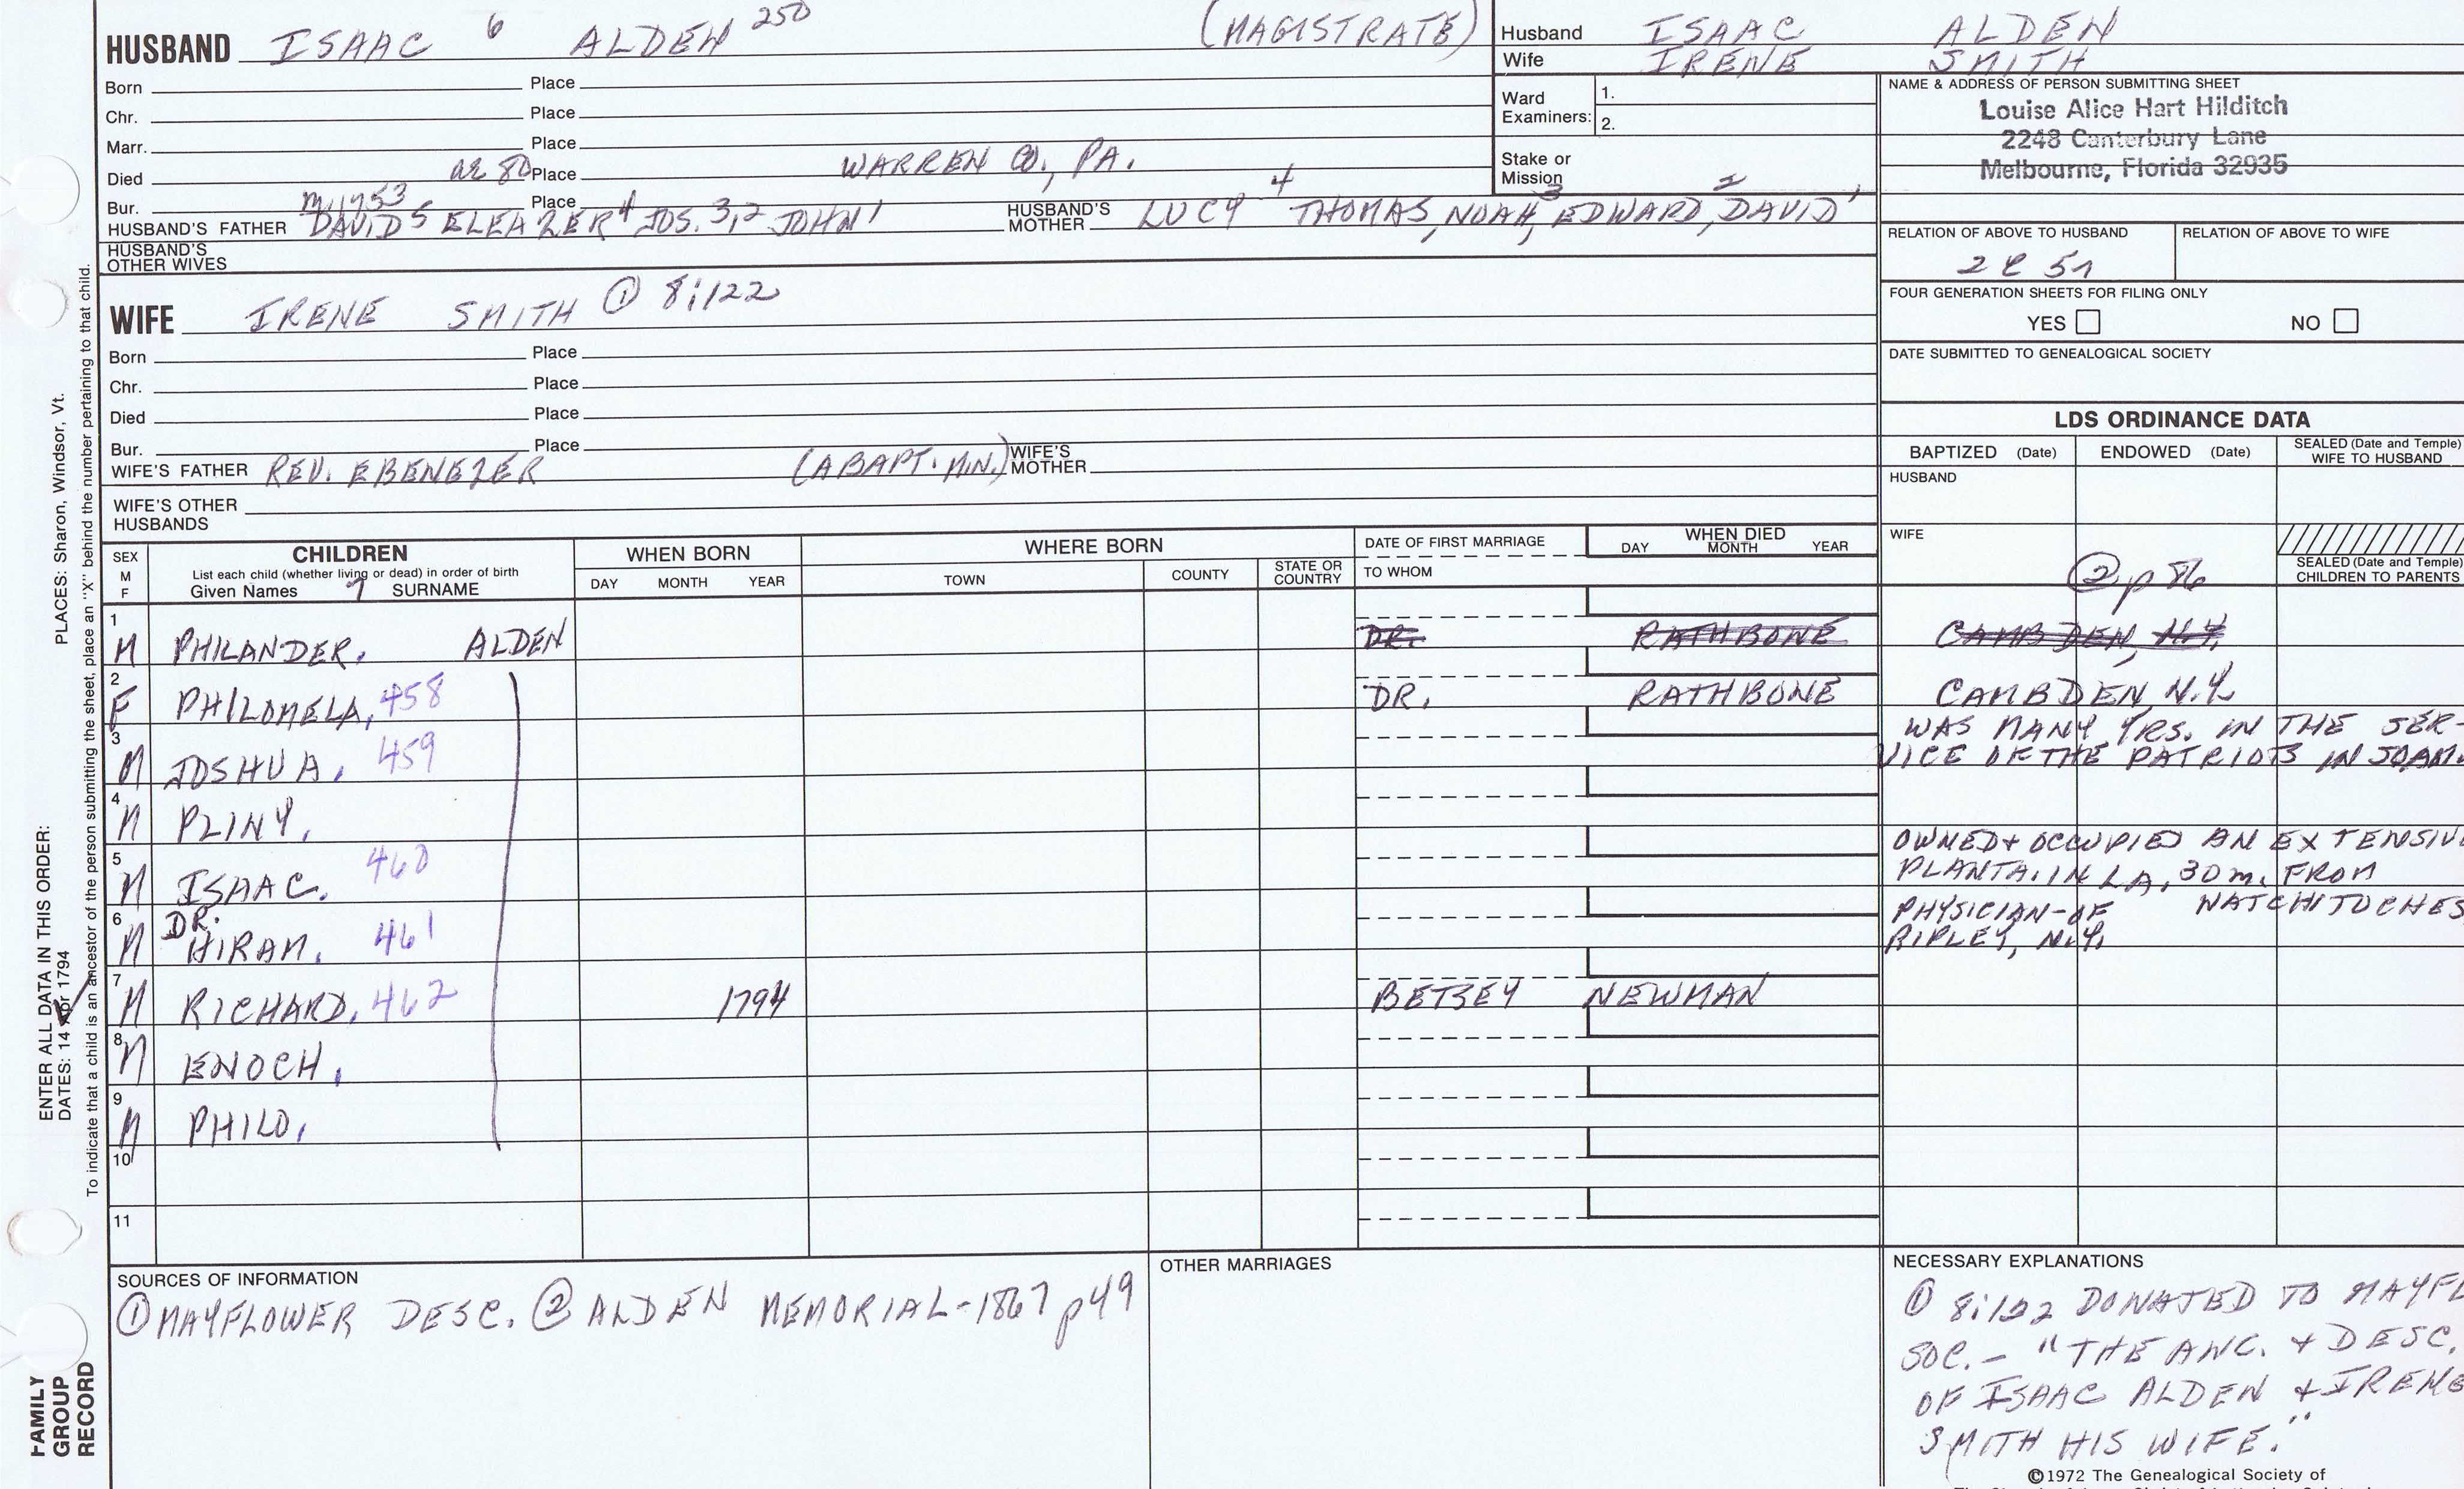 HUSBAND ISAAC 6 ALDEN 250 (MAGISTRATE)
Born Place
Chr. Place
Marr. Place
Died ae 80 Place WARREN CO., PA.
Bur. m 1753 Place
HUSBAND'S FATHER DAVID 5 ELEAZER 4 JOS. 3,2 JOHN 1 HUSBAND'S MOTHER LUCY 4 THOMAS, NOAH, 3 EDWARD, 2 DAVID 1
HUSBAND'S OTHER WIVES
WIFE IRENE SMITH ① 8:122
Born Place
Chr. Place
Died Place
Bur. Place
WIFE'S FATHER REV. EBENEZER (A BAPT. MIN.) WIFE'S MOTHER
WIFE'S OTHER HUSBANDS
Husband ISAAC ALDEN
Wife IRENE SMITH
Ward Examiners: 1.
2.
Stake or Mission
NAME & ADDRESS OF PERSON SUBMITTING SHEET
Louise Alice Hart Hilditch
2248 Canterbury Lane
Melbourne, Florida 32935
RELATION OF ABOVE TO HUSBAND RELATION OF ABOVE TO WIFE
2 C 5r
FOUR GENERATION SHEETS FOR FILING ONLY
YES NO
DATE SUBMITTED TO GENEALOGICAL SOCIETY
LDS ORDINANCE DATA
BAPTIZED (Date) ENDOWED (Date) SEALED (Date and Temple) WIFE TO HUSBAND
HUSBAND
WIFE
SEALED (Date and Temple) CHILDREN TO PARENTS
② p 86
SEX M F
CHILDREN
List each child (whether living or dead) in order of birth
Given Names 7 SURNAME
WHEN BORN
DAY MONTH YEAR
WHERE BORN
TOWN COUNTY STATE OR COUNTRY
DATE OF FIRST MARRIAGE
TO WHOM
WHEN DIED
DAY MONTH YEAR
1 M PHILANDER, ALDEN DR. RATHBONE CAMBDEN, N.Y.
2 F PHILOMELA, 458 DR. RATHBONE CAMBDEN, N.Y.
3 M JOSHUA, 459 WAS MANY YRS. IN THE SER-
VICE OF THE PATRIOTS IN
4 M PLINY,
5 M ISAAC. 460 OWNED + OCCUPIED AN EXTENSIVE
PLANTA. IN LA, 30 m. FROM
NATCHITOCHES
6 M DR. HIRAM, 461 PHYSICIAN-OF
RIPLEY, N.Y.
7 M RICHARD, 462 1794 BETSEY NEWMAN
8 M ENOCH,
9 M PHILO,
10
11
SOURCES OF INFORMATION
① MAYFLOWER DESC. ② ALDEN MEMORIAL-1867 p49
OTHER MARRIAGES
NECESSARY EXPLANATIONS
① 8:122 DONATED TO MAYFL
SOC. - "THE ANC. + DESC.
OF ISAAC ALDEN + IRENE
SMITH HIS WIFE."
©1972 The Genealogical Society of
PLACES: Sharon, Windsor, Vt.
ENTER ALL DATA IN THIS ORDER:
DATES: 14 Apr 1794
To indicate that a child is an ancestor of the person submitting the sheet, place an "X" behind the number pertaining to that child.
FAMILY
GROUP
RECORD